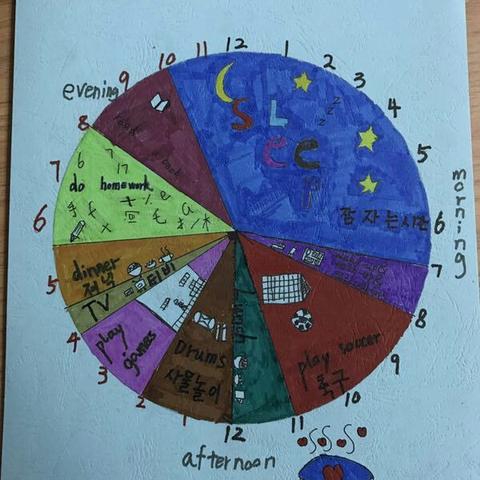 12
1
2
3
4
5
6
7
8
9
10
11
12
1
2
3
4
5
6
7
8
9
10
11
evening
morning
afternoon
SLEEP
z z z
잠 자는시간
play soccer
축구
Lunch
Drums
사물놀이
play
games
TV
티비
dinner
저녁
do homework
read a book